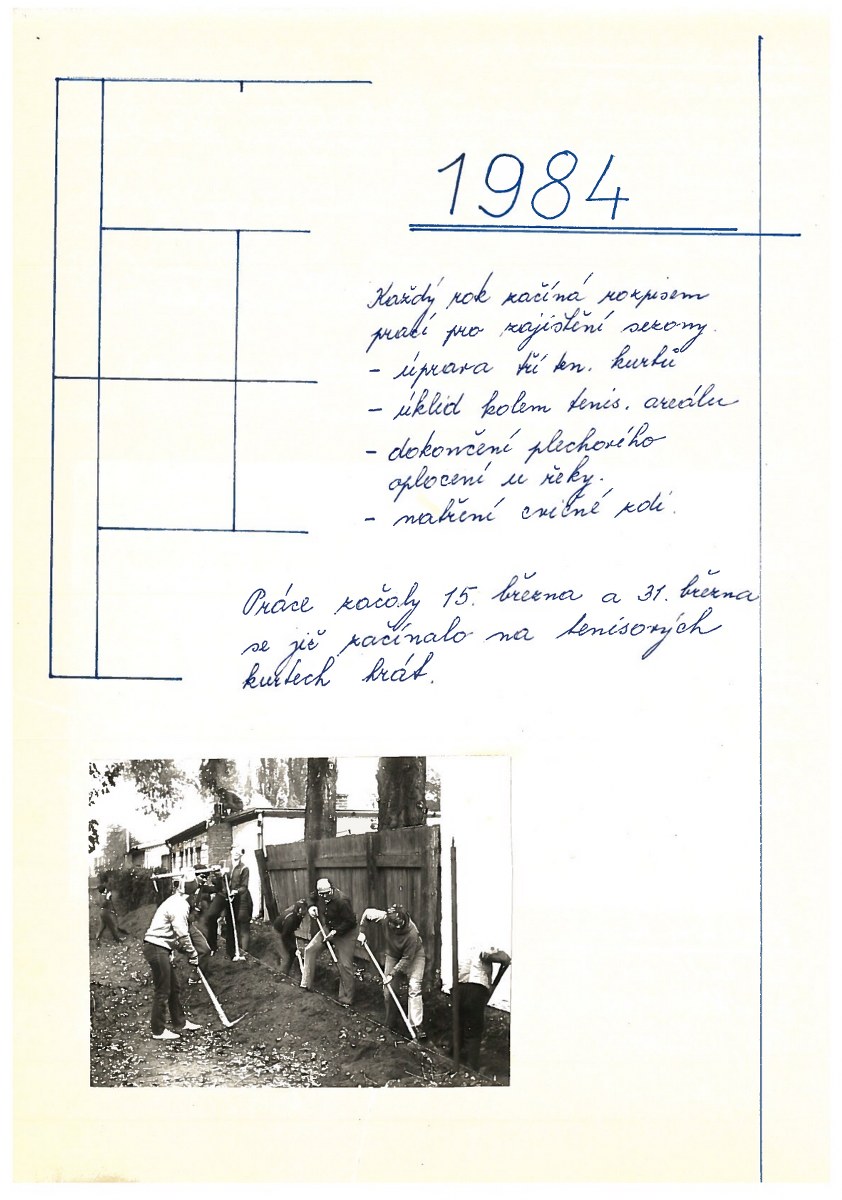 1984
Každý rok začíná rozpisem
prací pro zajištění sezony.
- úprava tří ten. kurtů
- úklid kolem tenis. areálu
- dokončení plechového
oplocení u řeky.
- natření cvičné zdi.
Práce začaly 15. března a 31. března
se již začínalo na tenisových
kurtech hrát.